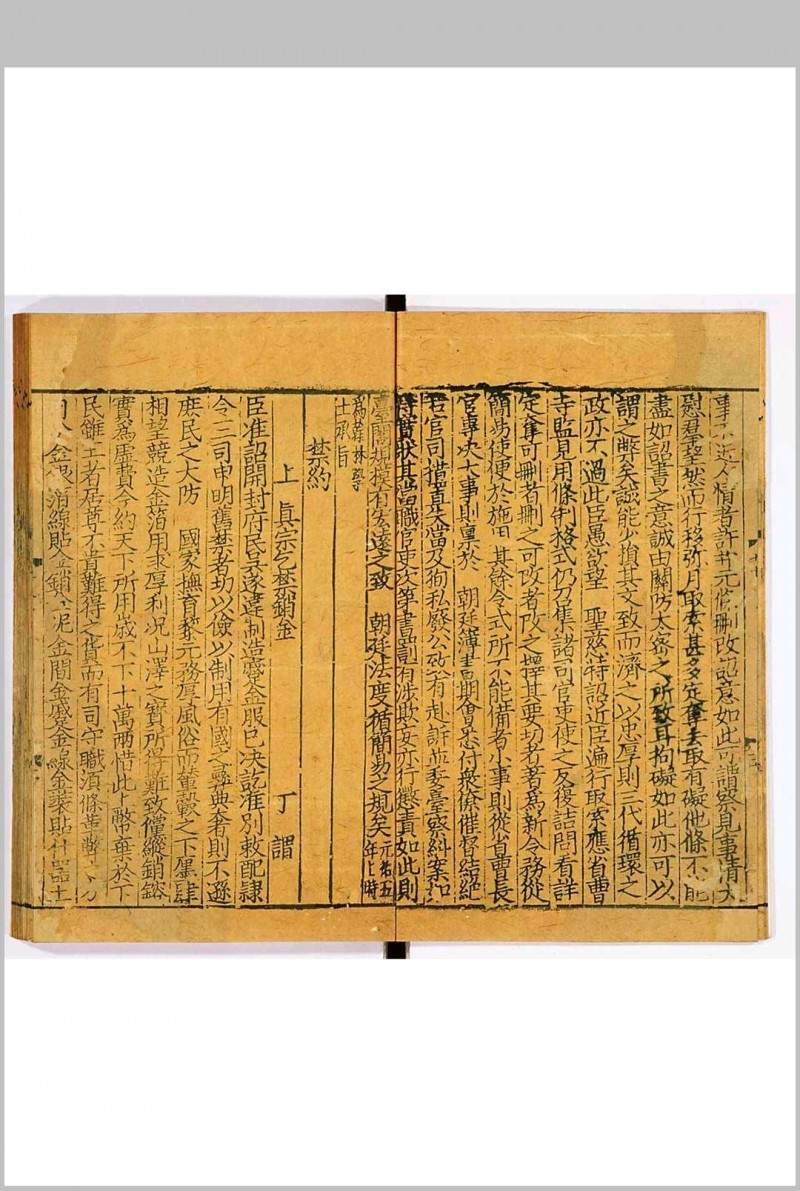 事不近人情者許於元條刪改詔意如此可謂察見事情大
慰羣望然而行移弥月取索甚多定奪去取有礙他條不能
盡如詔書之意誠由關防太密之所致耳拘礙如此亦可以
謂之弊矣誠能少損其文致而濟之以忠厚則三代循環之
政亦不過此臣愚欲望　聖慈特詔近臣遍行取索應省曹
寺監見用條制格式仍召集諸司官吏使之反復詰問看詳
定奪可刪者刪之可改者改之擇其要切者著爲新令務從
簡易使便於施用其餘令式所不能備者小事則從省曹長
官專决大事則稟於　朝廷簿書期會悉付衆條催督結絕
若官司措置失當及狥私廢公致有赴訴並委臺察糾案
得實狀其當職官吏次第書罰有涉欺妄亦行懲責如此則
臺閣規模有宏遠之致　朝廷法度循簡易之規矣元祐五年上時
爲翰林學士承旨
禁約
上　真宗乞禁銷金　丁謂
臣准詔開封府民吳遂違制造銷金服已决訖准別敕配隸
令三司申明舊禁者切以儉以制用有國之彝典奢則不遜
庶民之大防　國家撫育黎元務厚風俗而輦轂之下廛肆
相望競造金箔用求厚利况山澤之寶所得難致儻縱銷鎔
實爲虛費今約天下所用歲不下十萬兩惜此上幣棄於下
民雖王者居尊不貴難得之貨而有司守職須條革弊之方
金銀線貼金銷金泥金間金蹙金線金裝貼什器土